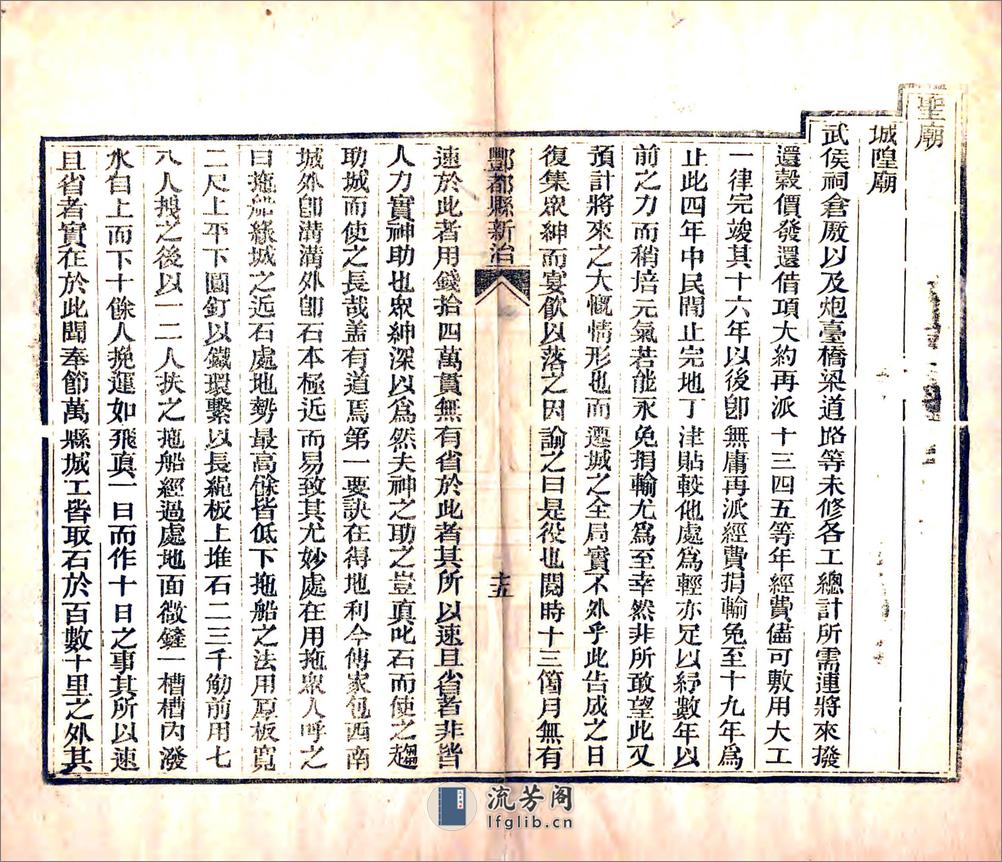 聖廟
城隍廟
武侯祠倉廒以及炮臺橋梁道路等未修各工總計所需連將來撥
還穀價發還借項大約再派十三四五等年經費儘可敷用大工
一律完竣其十六年以後卽無庸再派經費捐輸免至十九年爲
止此四年中民間止完地丁津貼較他處爲輕亦足以紓數年以
前之力而稍培元氣若能永免捐輸尤爲至幸然非所敢望此又
預計將來之大慨情形也而遷城之全局實不外乎此告成之日
復集眾紳而宴飲以落之因論之曰是役也閱時十三箇月無有
酆都縣新治
十五
速於此者用錢拾四萬貫無有省於此者其所以速且省者非皆
人力實神助也眾紳深以爲然夫神之助之豈真叱石而使之趨
助城而使之長哉盖有道焉第一要訣在得地利今傅家包西南
城外卽溝溝外卽石本極近而易致其尤妙處在用拖眾人呼之
曰拖船緣城之近石處地勢最高餘皆低下拖船之法用厚板寬
二尺上平下圓釘以鐵環繫以長繩板上堆石二三千觔前用七
八人拽之後以一二人扶之拖船經過處地面微鏟一槽槽內潑
水自上而下十餘人挽運如飛真一日而作十日之事其所以速
且省者實在於此聞奉節萬縣城工皆取石於百數十里之外其
流芳阁
lfglib.cn